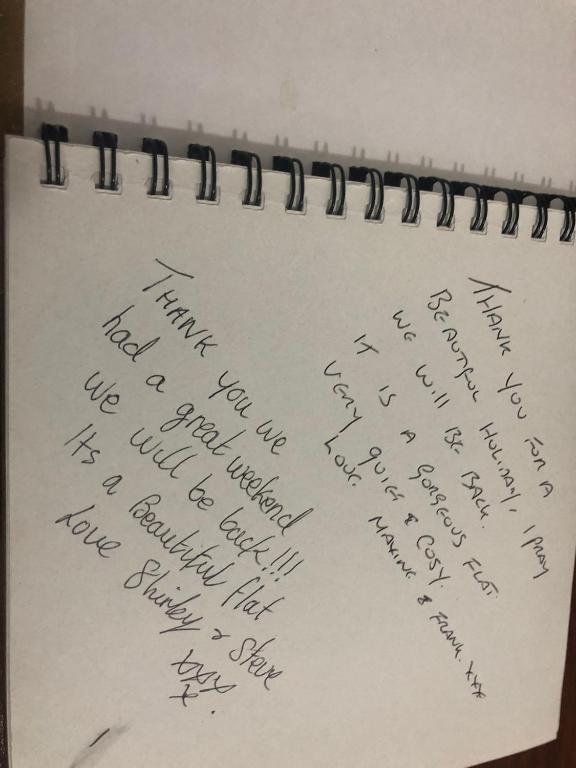 THANK YOU FOR A
BEAUTIFUL HOLIDAY, I PRAY
WE WILL BE BACK.
IT IS A GORGEOUS FLAT.
VERY QUIET & COSY.
LOVE. MAXINE & FRANK. xxx
THANK you we
had a great weekend
we will be back!!!
Its a Beautiful flat
Love Shirley & Steve
xxxx
x.